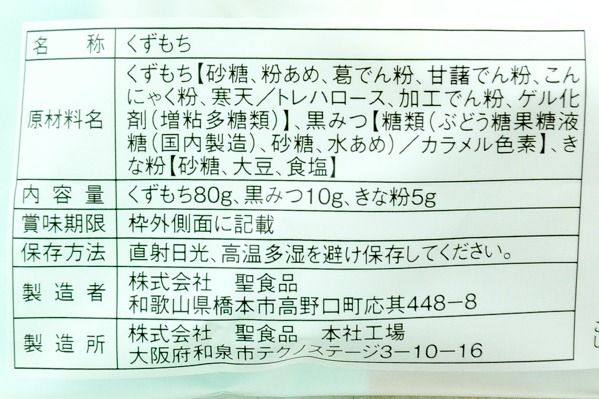 名称 くずもち
くずもち【砂糖、粉あめ、葛でん粉、甘藷でん粉、こん
にゃく粉、寒天／トレハロース、加工でん粉、ゲル化
原材料名 剤（増粘多糖類）】、黒みつ【糖類（ぶどう糖果糖液
糖（国内製造）、砂糖、水あめ）／カラメル色素】、き
な粉【砂糖、大豆、食塩】
内容量 くずもち80g、黒みつ10g、きな粉5g
賞味期限 枠外側面に記載
保存方法 直射日光、高温多湿を避け保存してください。
製造者 株式会社 聖食品
和歌山県橋本市高野口町応其448－8
製造所 株式会社 聖食品 本社工場
大阪府和泉市テクノステージ3－10－16